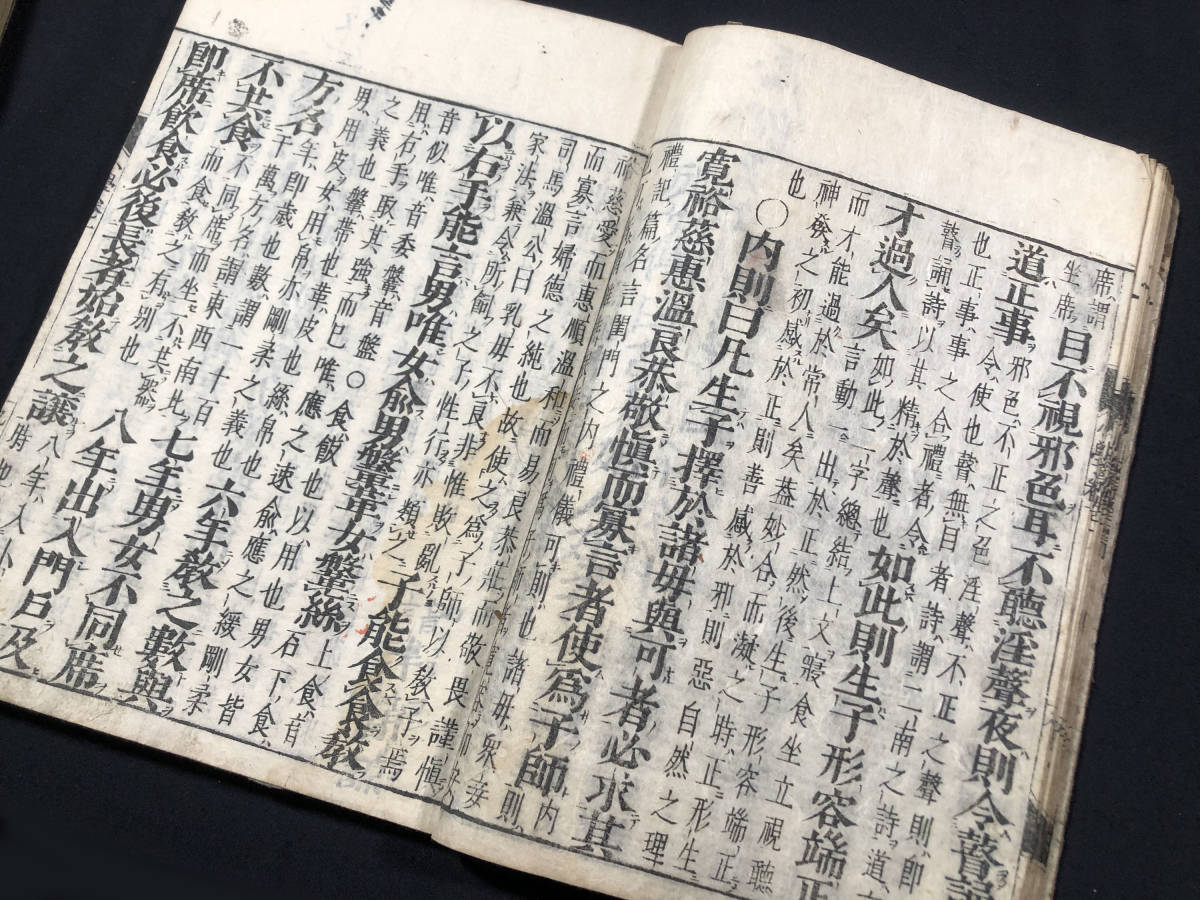 席謂
坐席 目不視邪色耳不聽淫聲夜則令瞽誦
道正事 邪色不正之色淫聲不正之聲則即
也令使也瞽無目者詩謂二南之詩道
也正事事之合禮者令
瞽誦詩以其精於聲也 如此則生子形容端正
才過人矣 如此二字總結上文寢食坐立視聽
言動一出於正然後生子形容端正
而才能過於常人矣蓋妙合而凝之時正形生
神發之初感於正則善感於邪則惡自然之理
也
○內則曰凡生子擇於諸母與可者必求其
寬裕慈惠溫良恭敬愼而寡言者使爲子師 內則
禮記篇名言閨門之內禮儀可則也諸母衆妾
裕慈愛而惠順溫和而易良恭莊而敬畏謹愼
而寡言婦德之純也故使之爲子師以教子焉
司馬溫公曰乳母不良非惟敗亂
家法兼令所飼之子性行亦類之 子能食食教
以右手能言男唯女兪男鞶革女鞶絲 上食音
音似唯音委鞶音盤○食飯也以用也右下食
用右手取其強而已唯應之速兪應之緩剛柔
之義也鞶帶也革皮也絲帛也男女皆
男用皮女用帛亦剛柔之義也 六年教之數與
方名 年即歲也數謂一十百
千萬方名謂東西南北 七年男女不同席
不共食 不同席而坐不共器
而食教之有別也 八年出入門戶及
即席飲食必後長者始教之讓 八年入小
時也